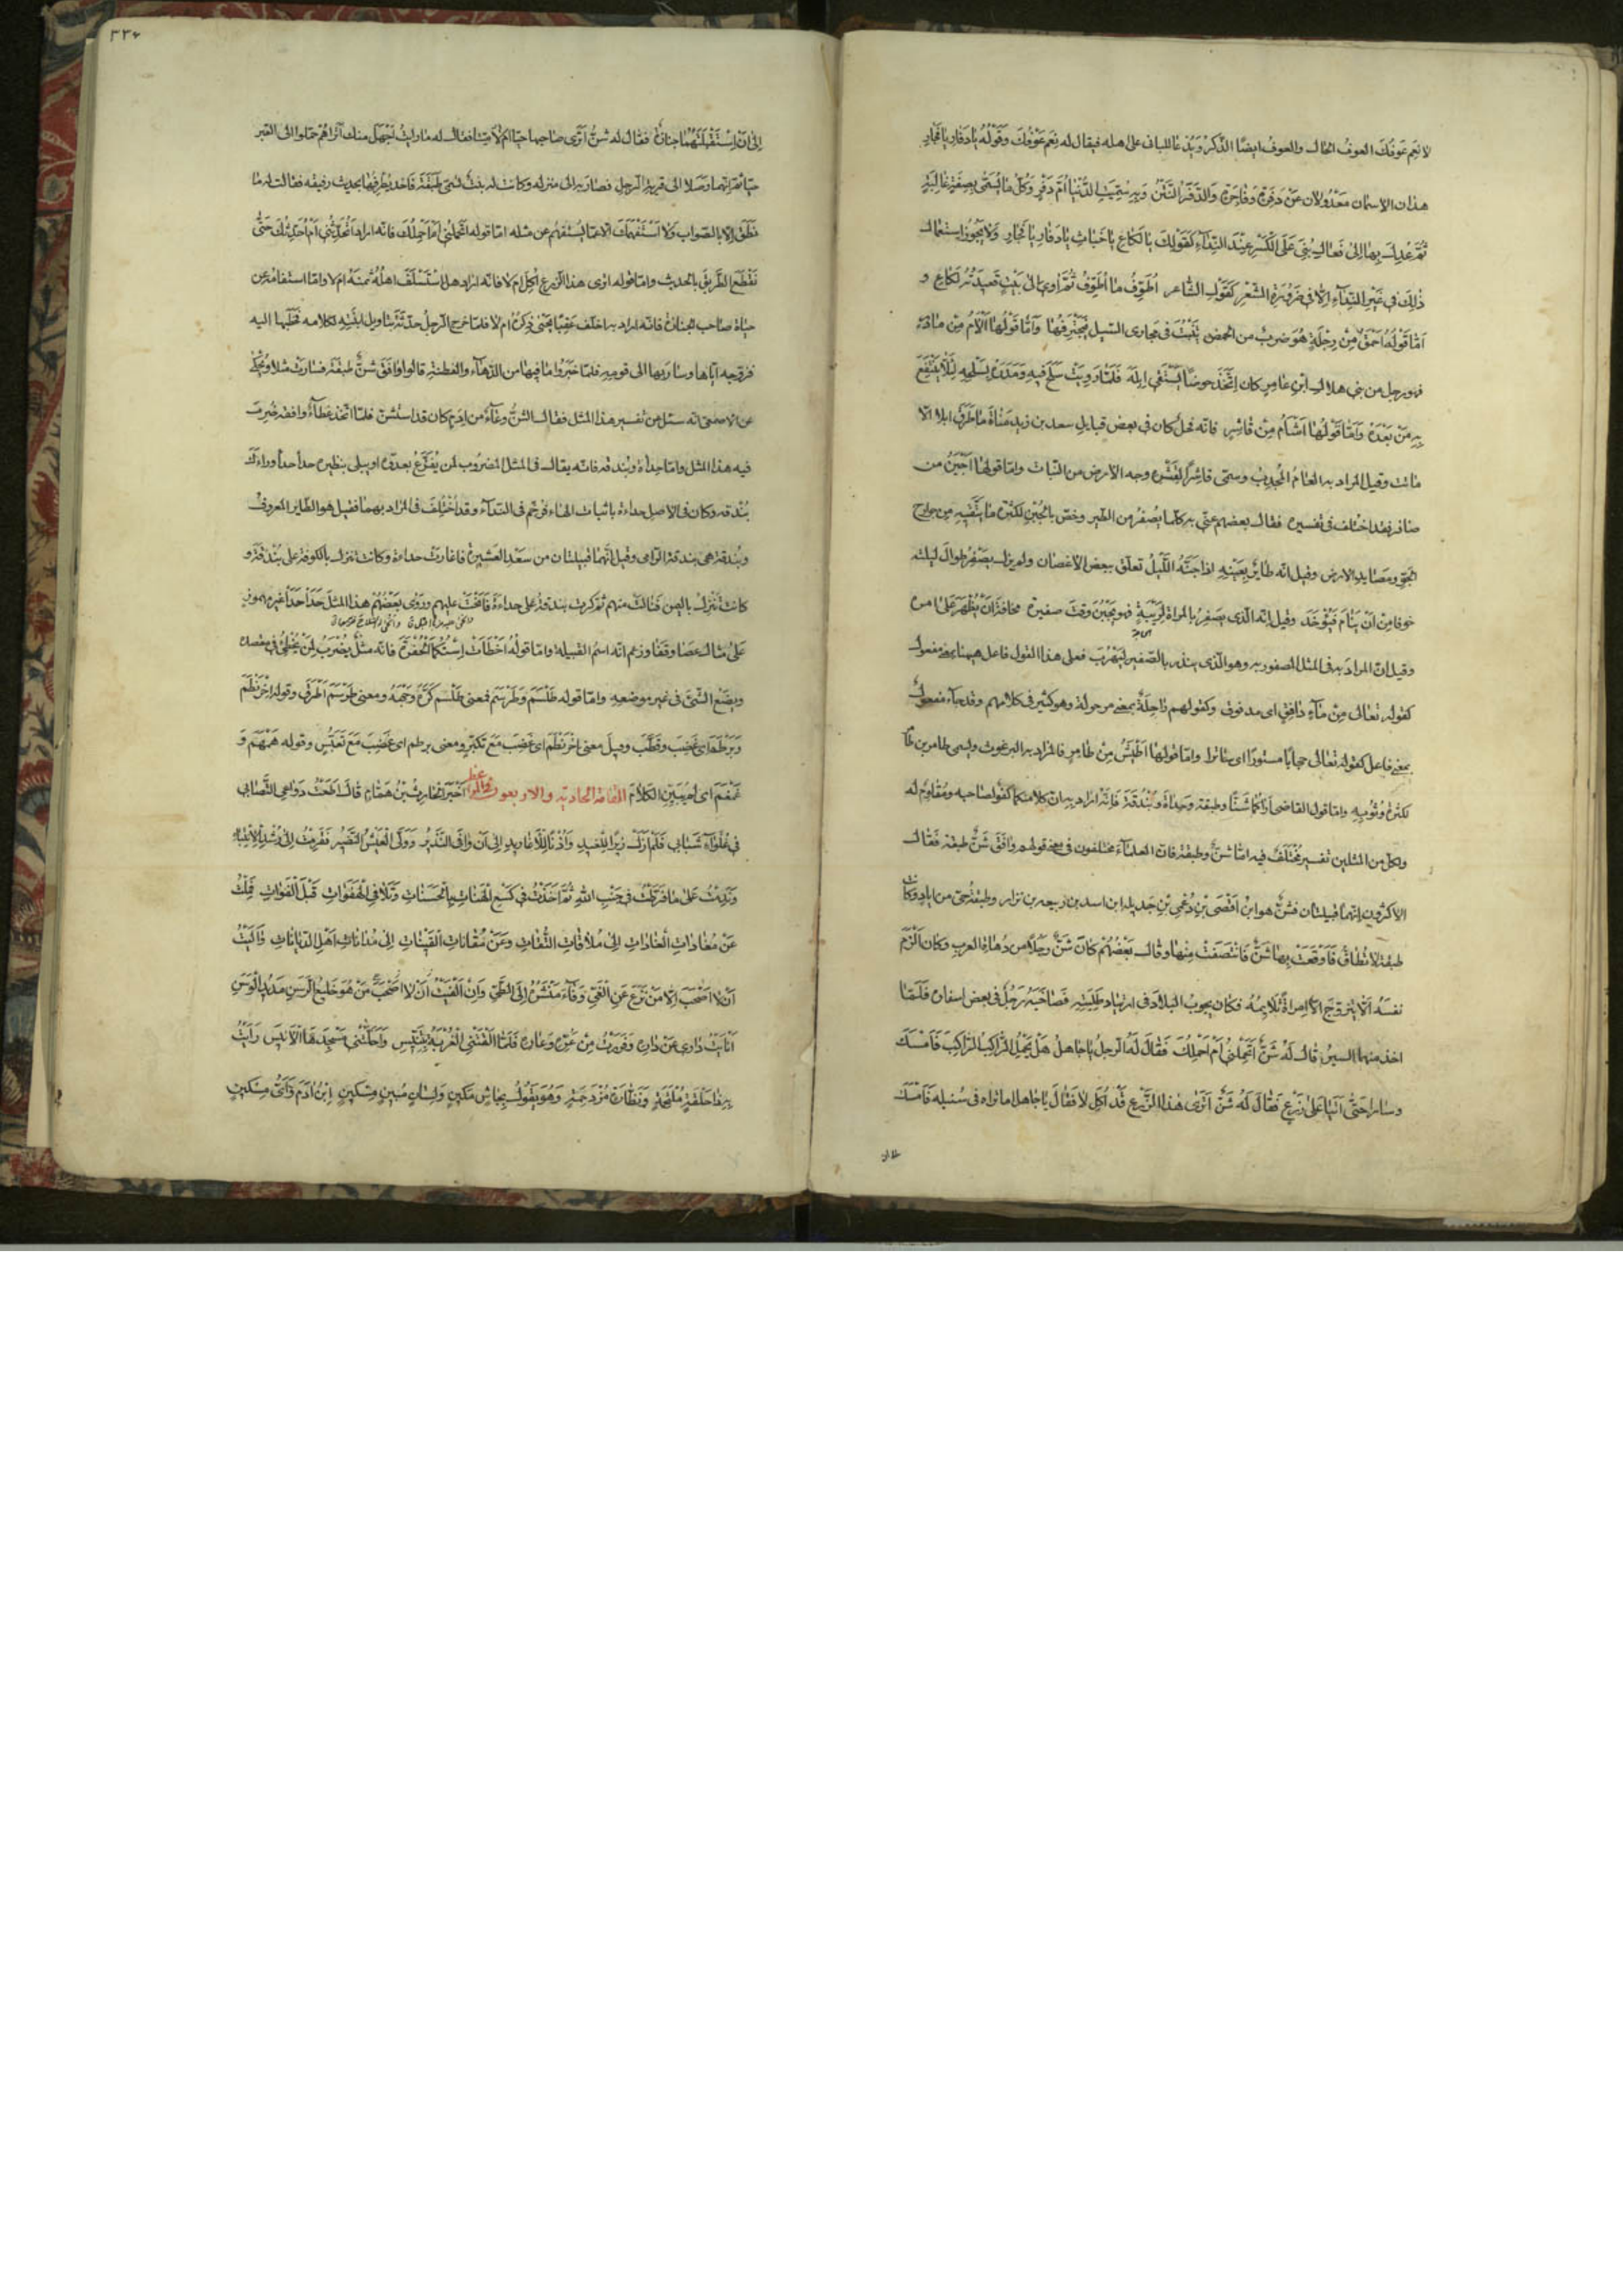 لا نعم عوفك العوف الحال والعوف ايضًا الذكر ويُدعا للبانى على اهله فيقال له نِعمَ عَوفُكَ وَقَوْلُهُ يَا دَفارِ يا فجارِ
هذان الاسمان معدولان عن دَفِرةٍ وفاجرةٍ والدَّفَرُ النَّتَن وبه سُمّيت الدنيا اُمَّ دَفْرٍ وكلّ ما يُسمّى بصفةٍ غالبةٍ
ثمّ عُدِلَ بها الى فَعالِ بُنِىَ على الكسر عند النداءِ كقولك يا لَكاعِ يا خَباثِ يا دَفارِ يا فَجارِ ولا يجوز استعمال
ذلك فى غير النداءِ الّا فى ضرورة الشعر كقول الشاعر اُطَوِّفُ ما اُطَوِّفُ ثُمَّ اوى الى بَيْتٍ قعيدتُه لَكاعِ و
امّا قولُه اَحمَقُ مِنْ رِجْلَةٍ هُوَ ضربٌ من الحمض ينبُتُ فى مجارى السيل فيجترفُها وامّا قولُها اَلْأَمُ مِنْ مادِرٍ
فهو رجل من بنى هلال ابن عامرٍ كان اتّخذ حوضًا ليسقى ابله فلمّا رَوِيَتْ سلح فيه ومدره بسلحه لئلّا ينتفع
به مَنْ بَعدَهُ وامّا قولُها اَشأَمُ مِنْ قاشِرٍ فانّه فحل كان فى بعض قبايل سعد بن زيد مناة ما طرق ابلا الّا
ماتت وقيل المراد به العامُ المُجدِبُ وسمّى قاشِرًا لِقَشْرِه وجه الارض من النبات وامّا قولها اَجْبَنُ من
صافر فقد اختلف فى تفسيره فقال بعضهم عنى به كلّما يصفر من الطير وخصّ بالجبن لكثرة ما يتّقيه من جوارح
الجوّ ومصايد الارض وقيل انّه طاير بعينه اذا جنّه اللّيل تعلّق ببعض الاغصان ولم يزل يصفر طوال ليلته
خوفا من اَن ينام فيؤخذ وقيل انّه الّذى يصفر بالمراة لريبةٍ فهو يجبُن وقت صفيره مخافة اَنْ يُظْهَر على امره
وقيل انّ المراد به فى المثل المصفور به وهو الّذى ينذر بالصفير ليَهْرُبَ فعلى هذا القول فاعل ههنا بمعنى مفعول
كقوله تعالى مِنْ مآءٍ دافِقٍ اى مدفوق وكقولهم راحِلَة بمعنى مرحولة وهو كثير فى كلامهم وقد جآء مفعول
بمعنى فاعل كقوله تعالى حجابًا مستورًا اى ساترا وامّا قولها اَطْيَشُ مِنْ طامِرٍ فالمراد به البرغوث ويسمى طامر بن طامر
لكثرة وُثوبِه وامّا قول القاضى اراكما شنًّا وطبقة وحدأةً وبُنْدُقَةً فانّه اراد به ان كلا منكما كفو لصاحبه ومُقاوِم له
ولكل من المثلين تفسير مُختَلَفٌ فيه امّا شنٌّ وطبقة فان العلمآءَ مختلفون فى معنى قولهم وافَقَ شنٌّ طبقة فقال
الاكثرون انّهما قبيلتان فشنٌّ هو ابنُ اَفْصَى بْنِ دُعْمِىِّ بْنِ جديلة ابن اسد بن ربيعه بن نزار وطبقة حىّ من اياد وكانت
طبقة لا تُطاقُ فَاَوْقَعَتْ بها شنٌّ فانتصفت منها وقال بعضُهُمْ كان شنٌّ رجُلًا من دُهاةِ العرب وكان اَلْزَمَ
نفسَهُ اَلّا يتزوّج الّا امراةً تُلايِمُه فكان يجوب البلاد فى ارتياد طلبته فصاحَبَه رجُلٌ فى بعض اسفاره فلمّا
اخذ منهما السيرُ قال لهُ شنٌّ اَتَحْمِلُنى اَمْ اَحْمِلُكَ فقال له الرجلُ يا جاهلُ هل يَحْمِلُ الراكِبُ الراكِبَ فامسك
وسارا حتّى اتيا على زَرْعٍ فقال له شنٌّ اَتَرى هذا الزَّرْع قد اُكِلَ ام لا فقال يا جاهل اما تراه فى سُنبله فامسك
٣٣۶
الى اَنْ اِسْتَقْبَلَتْهُما جنازةٌ فقال له شنٌّ اَتَرى صاحبها حيًّا ام لا فقال له ما رايتُ اَجْهَلَ منك اَتُراهُمْ حملوا الى القبر
حيًّا ثم انّهما وصلا الى قرية الرجل فصار به الى منزله وكانت له بنت تسمى طبقة فاخذ يُطرِفُها بحديث رفيقه فقالت له ما
نَطَقَ الّا بالصواب ولا استَفْهَمَكَ الّا عمّا يُستفهَم عن مثله امّا قوله اتحملنى اَم اَحملك فانّه اراد اَتُحَدِّثُنى اَم اُحَدِّثُكَ حتّى
نقطع الطريق بالحديث وامّا قوله اترى هذا الزرع اُكِلَ ام لا فانّه اراد هل استسلف اهلُه ثمنَهُ ام لا وامّا استفهامه عن
حياة صاحب الجنازة فانّه اراد به اخلف عَقِبًا يَحْيى ذِكرُه ام لا فلمّا خرج الرجلُ حدّثه بتاويل ابنته لكلامه فخطبها اليه
فزوّجه ايّاها وسار بها الى قومه فلمّا خَبَروا ما فيها من الدَّهآءِ والفطنة قالوا وافَقَ شنٌّ طبقةَ فسارت مثلا وحُكِىَ
عن الاصمعى انّه سئل عن تفسير هذا المثل فقال الشنُّ وِعآءٌ من اَدَمٍ كان قد استُشنّ فلمّا اتّخذ غطآءٌ وافقه ضُرِبَ
فيه هذا المثل وامّا حِدأة وبُندقه فانّه يقال فى المثل المضروب لمن يُفَزَّعُ بعدوّه او يبلى بنظيره حدأ حدأ وراءَك
بُنْدقه وكان فى الاصل حداءة باثبات الهاء فرخّم فى الندآء وقد اختُلِفَ فى المراد بهما فقيل هو الطاير المعروف
وبُندقة هى بندقة الرّامى وقيل انّهما قبيلتان من سعد العَشيرة فاغارت حداءة وكانت تنزل بالكوفة على بُنْدقَة و
كانت تنزلُ باليمن فنالت منهم ثمّ كرّت بندقة على حداءة فاَنْحَتْ عليهم وروى بعضُهُمْ هذا المثل حَدَا حَدَا غير مهموز
على مثال عصا وقفا وزعم انّه اسمُ القبيلة وامّا قولُه اَخْطَاَتْ اِسْتُكُما الحُفْرَةَ فانّه مَثَلٌ يُضرَبُ لِمَنْ يُخْطِئُ فى مقصده
ويضع الشَّىءَ فى غير موضعه وامّا قوله طَلْسَمَ وطَرْسَمَ فمعنى طلسم كَرَّهَ وَجْهَهُ ومعنى طَرْسَمَ اَطْرَقَ وقوله اِخْرَنْطَمَ
وبَرْطَمَ اى غَضِبَ وقَطَّبَ وقيل معنى اخرنطم اى غضب مع تكبّرٍ ومعنى برطم اى غضب مع تعبّسٍ وقوله هَمْهَمَ وَ
غَمْغَمَ اى لم يُبَيّن الكلامَ المقامة الحادية والاربعون اَخْبَرَ الحارِثُ بْنُ هَمّامٍ قالَ اَطَعْتُ دَواعِىَ التَّصابى
فى غُلَوآءِ شَبابى فَلَمْ اَزَلْ زِيرًا لِلْغيدِ وَاُذُنًا لِلاَغاريدِ الى اَنْ وافَى النَّذيرُ وَوَلَّى الْعَيْشُ النَّضيرُ فَقَرِمْتُ الى رُشْدِ الاِنْتِباهِ
وَنَدِمْتُ على ما فَرَّطْتُ فى جَنْبِ اللّهِ ثُمَّ اَخَذْتُ فى كَسْعِ الْهَناتِ بِالْحَسَناتِ وَتَلافِى الْهَفَواتِ قَبْلَ الْفَواتِ فَمِلْتُ
عَنْ مُغاداتِ الْغاداتِ الى مُلاقاتِ التُّقاتِ وَعَنْ مُقاناتِ الْقَيْناتِ الى مُداناتِ اَهْلِ الدِّياناتِ وَآلَيْتُ
اَنْ لا اَصْحَبَ اِلّا مَنْ نَزَعَ عَنِ الْغَىِّ وَفآءَ مَنْشَرُهُ اِلَى الطَّىِّ وَاِنْ اَلْفَيْتُ اَنْ لا اَصْحَبَ مَنْ هُوَ خَليعُ الرَّسَنِ مَديدُ الْوَسَنِ
اَنْاَيْتُ دارى عَنْ دارِهِ وَفَرَرْتُ مِنْ عَرِّهِ وَعارِهِ فَلَمّا اَلْقَتْنى الْغُرْبَةُ بِتِنّيس وَاَحَلَّتْنى مَسْجِدَها الاَنيس رَاَيْتُ
بِهِ ذا حَلْقَةٍ مُلْتَحِمَةٍ وَنَظّارَةٍ مُزْدَحِمَةٍ وَهُوَ يَقُولُ بِجاشٍ مَكينٍ وَلِسانٍ مُبينٍ مِسْكينٍ اِبْنُ آدَمَ وَاَىُّ مِسْكينٍ